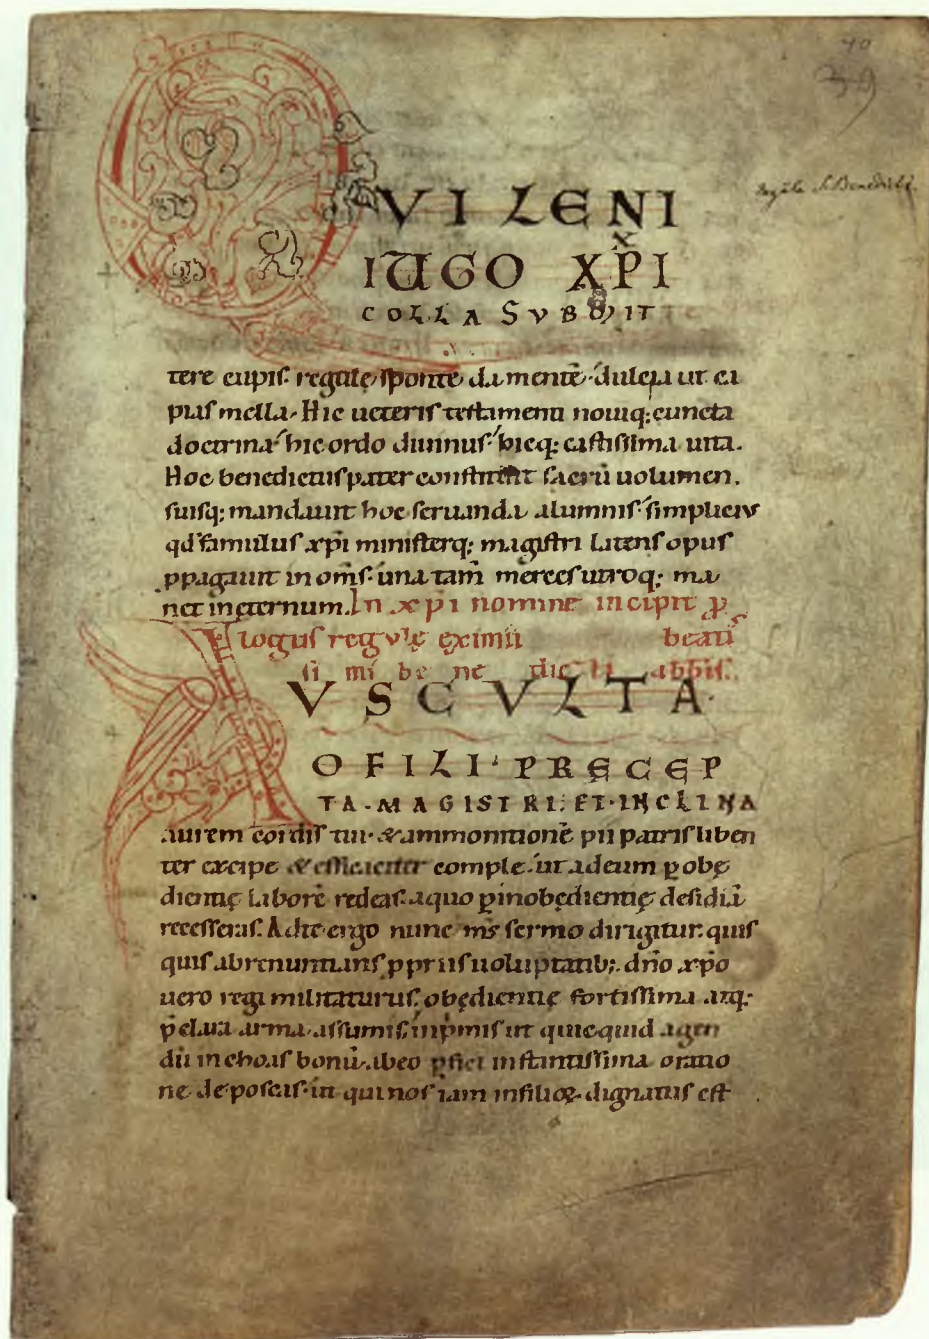 40
39
Regula S. Benedicti
QVI LENI
IUGO XPI
COLLA SVBMIT
tere cupis. regule sponte da mentē. dulcia ut ca
pias mella. Hic ueteris testamenti nouiq; cuncta
doctrina. hic ordo diuinus. hicq; castissima uita.
Hoc benedictus pater constituit sacrū uolumen.
suisq; mandauit hoc seruanda alumnis. simplicius
qd famulus xp̄i ministerq; magistri latens opus
ppagauit in om̄s. una tam̄ merces utroq; ma
net in ęternum. In xpi nomine incipit p
logus regulę eximii beati
si mi be ne dic ti abbis.
AVSCVLTA
O FILI. PRĘCEP
TA. MAGISTRI. ET. INCLINA
aurem cordis tui. & ammonitionē pii patris liben
ter excipe & efficaciter comple. ut ad eum p obę
dientię laborē redeas. a quo p inobędientię desidiā
recesseras. Ad te ergo nunc m̄s sermo dirigitur. quis
quis abrenuntians ppriis uoluptatib;. dn̄o xp̄o
uero regi militaturus. obędientię fortissima atq;
pclara arma assumis. inp̄mis ut quicquid agen
dū inchoas bonū. ab eo pfici instantissima oratio
ne deposcas. ut qui nos iam in filioꝝ dignatus est